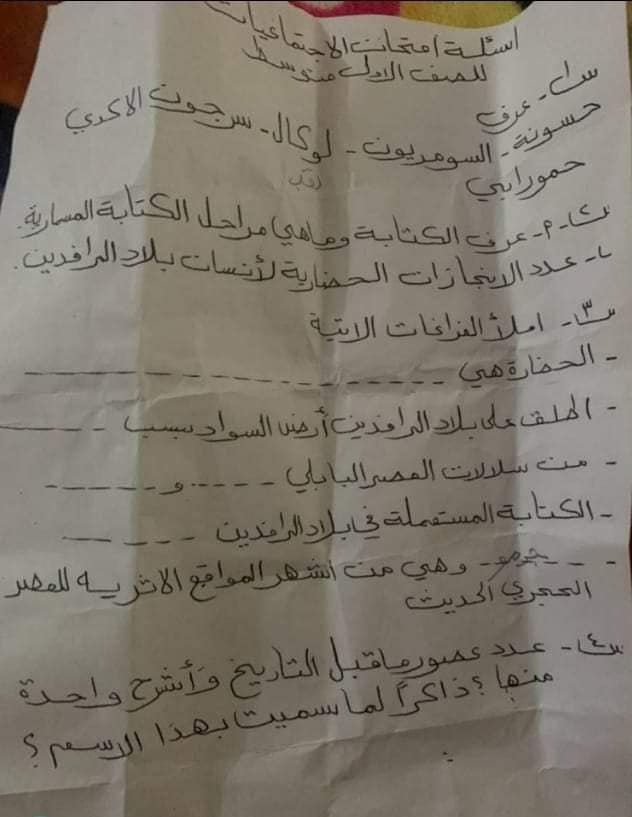 اسئلة امتحانات الاجتماعيات
للصف الاول متوسط
س١- عرف
حسونة - السومريون - لوكال - سرجون الاكدي
لقب
حمورابي
س٢- م- عرف الكتابة وماهي مراحل الكتابة المسمارية.
ب- عدد الانجازات الحضارية لأنسان بلاد الرافدين.
س٣- املأ الفراغات الاتية
- الحضارة هي - - - - - - - - - - - - - - -
- اطلق على بلاد الرافدين أرض السواد بسبب - - - -
- من سلالات العصر البابلي - - - - - و - - - - -
- الكتابة المستعملة في بلاد الرافدين - - - - -
- - - جرمو - وهي من اشهر المواقع الاثريه للعصر
الحجري الحديث
س٤- عدد عصور ماقبل التاريخ وأشرح واحدة
منها ؟ ذاكراً لما سميت بهذا الاسم ؟